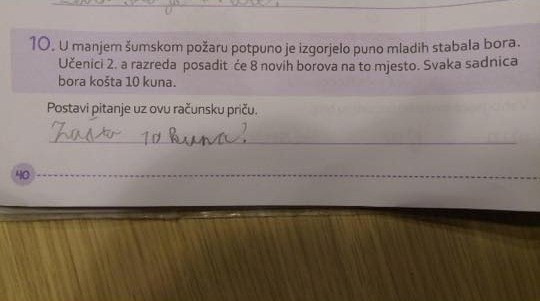 10. U manjem šumskom požaru potpuno je izgorjelo puno mladih stabala bora.
Učenici 2. a razreda posadit će 8 novih borova na to mjesto. Svaka sadnica
bora košta 10 kuna.
Postavi pitanje uz ovu računsku priču.
Zašto 10 kuna?
40